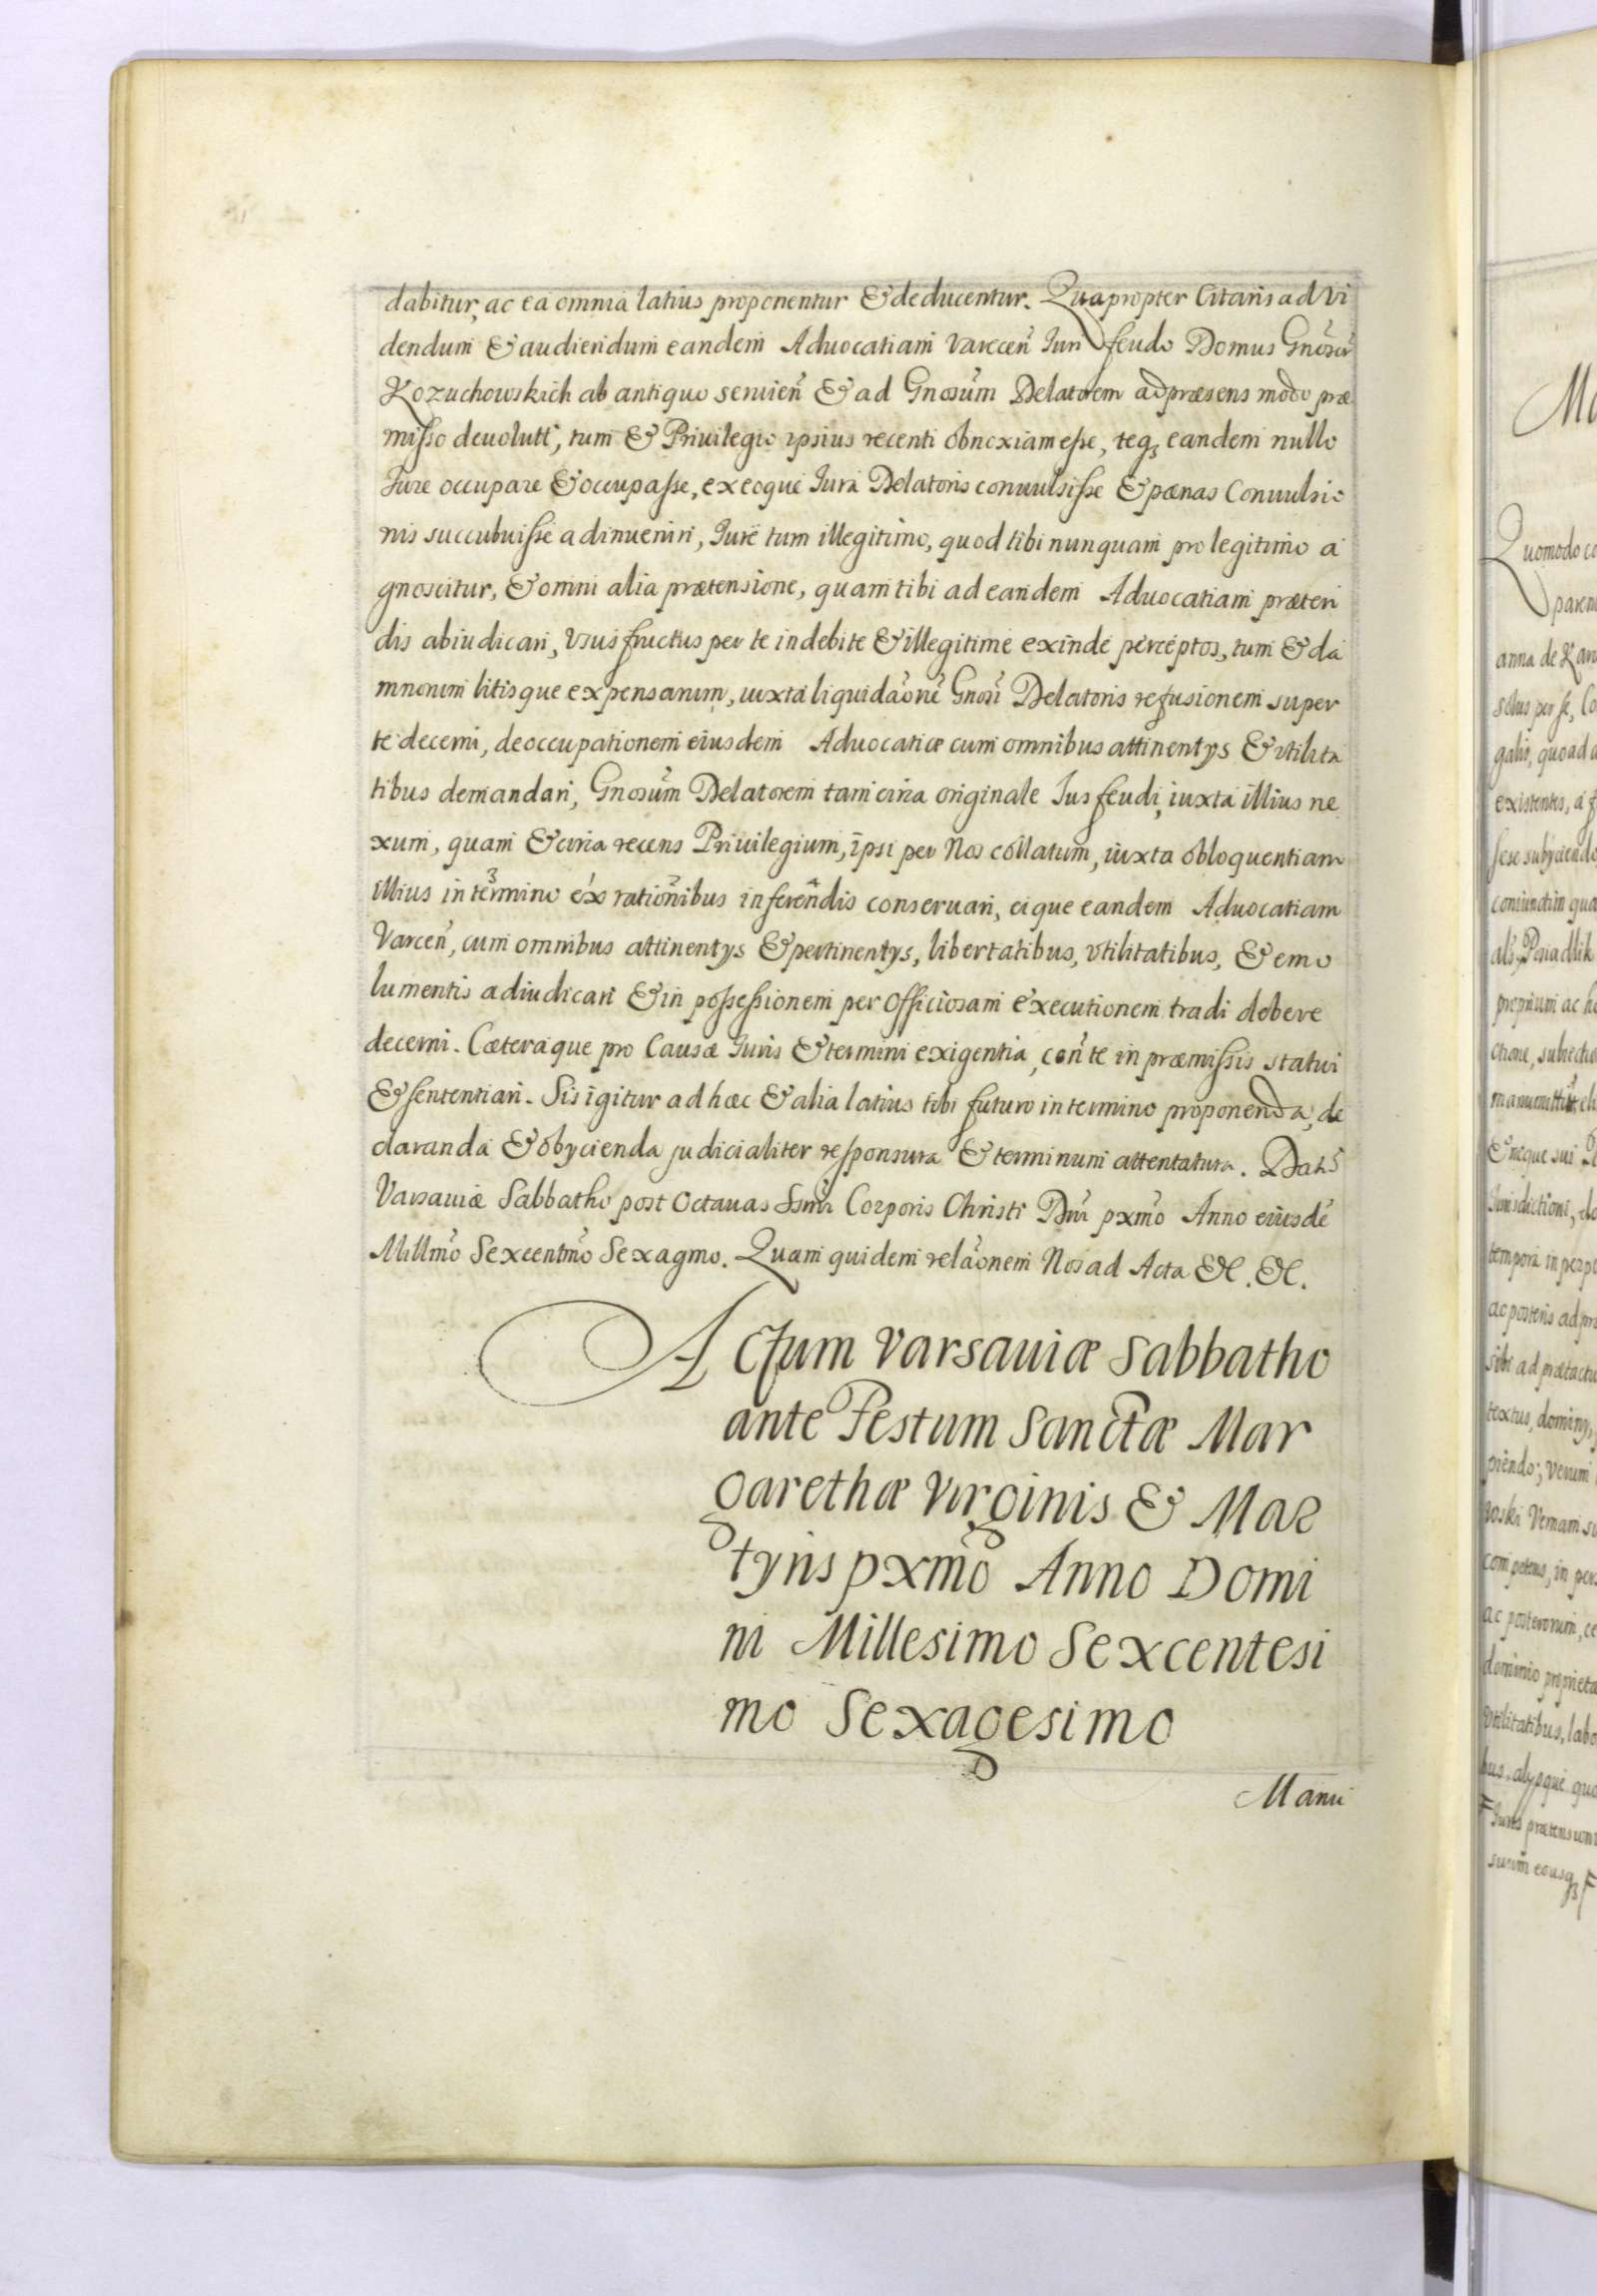 dabitur, ac ea omnia latius proponentur & deducentur. Quapropter Citaris ad Vi
dendum & audiendum eandem Aduocatiam Varecen̄ Juri feudo Domus Gnosor̄
Kozuchowskich ab antiquo seruien̄ & ad Gnosum̄ Delatorem ad præsens modo præ
misso deuoluti, tum & Priuilegio ipsius recenti obnoxiam esse, teq3 eandem nullo
Jure occupare & occupasse, ex eoque Jura Delatoris conuulsisse & pœnas Conuulsio
nis succubuisse adinueniri, Jure tum illegitimo, quod tibi nunquam pro legitimo a
gnoscitur, & omni alia prætensione, quam tibi ad eandem Aduocatiam præten
dis abiudicari, Vsus fructus per te indebite & illegitime exinde perceptos, tum & da
mnorum litisque expensarum, iuxta liquidaōnē Gnosi Delatoris refusionem super
te decerni, deoccupationem eiusdem Aduocatiæ cum omnibus attinentijs & vtilita
tibus demandari, Gnosum̄ Delatorem tam circa originale Jus feudi, iuxta illius ne
xum, quam & circa recens Priuilegium, ipsi per Nos collatum, iuxta obloquentiam
illius in termino ex rationibus inferendis conseruari, eique eandem Aduocatiam
Varcen̄, cum omnibus attinentijs & pertinentijs, libertatibus, vtilitatibus, & emo
lumentis adiudicari & in possessionem per Officiosam executionem tradi debere
decerni. Cæteraque pro Causæ Juris & termini exigentia, con̄ te in præmissis statui
& sententiari. Sis igitur ad hæc & alia latius tibi futuro in termino proponenda, de
claranda & obijcienda judicialiter responsura & terminum attentatura. Dat
Varsauiæ Sabbatho post Octauas Ssmi Corporis Christi Dni pxmo Anno eiusdē
Millmo Sexcentmo Sexagmo. Quam quidem relaōnem Nos ad Acta &c. &c.
Actum Varsauiæ Sabbatho
ante Festum Sanctæ Mar
garethæ Virginis & Mar
tyris pxmo Anno Domi
ni Millesimo Sexcentesi
mo Sexagesimo
Manu
Quomodo
anna de
galis, quoad
existentes, a
sese subyciendo
coniunctim
manumittit
& neque sui
Jurisdictioni,
ac posteris ad
sibi ad
piendo; Verum
competens, in
ac posterorum,
dominio
vtilitatibus,